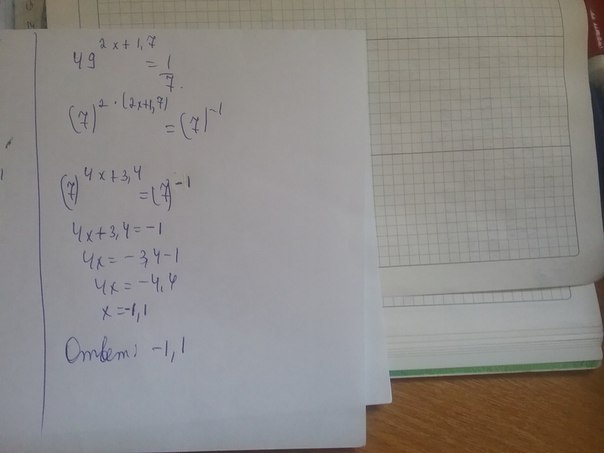 49^{2x+1,7} = \frac{1}{7}.
(7)^{2·(2x+1,7)} = (7)^{-1}
(7)^{4x+3,4} = (7)^{-1}
4x+3,4=-1
4x=-3,4-1
4x=-4,4
x=-1,1
Ответ: -1,1